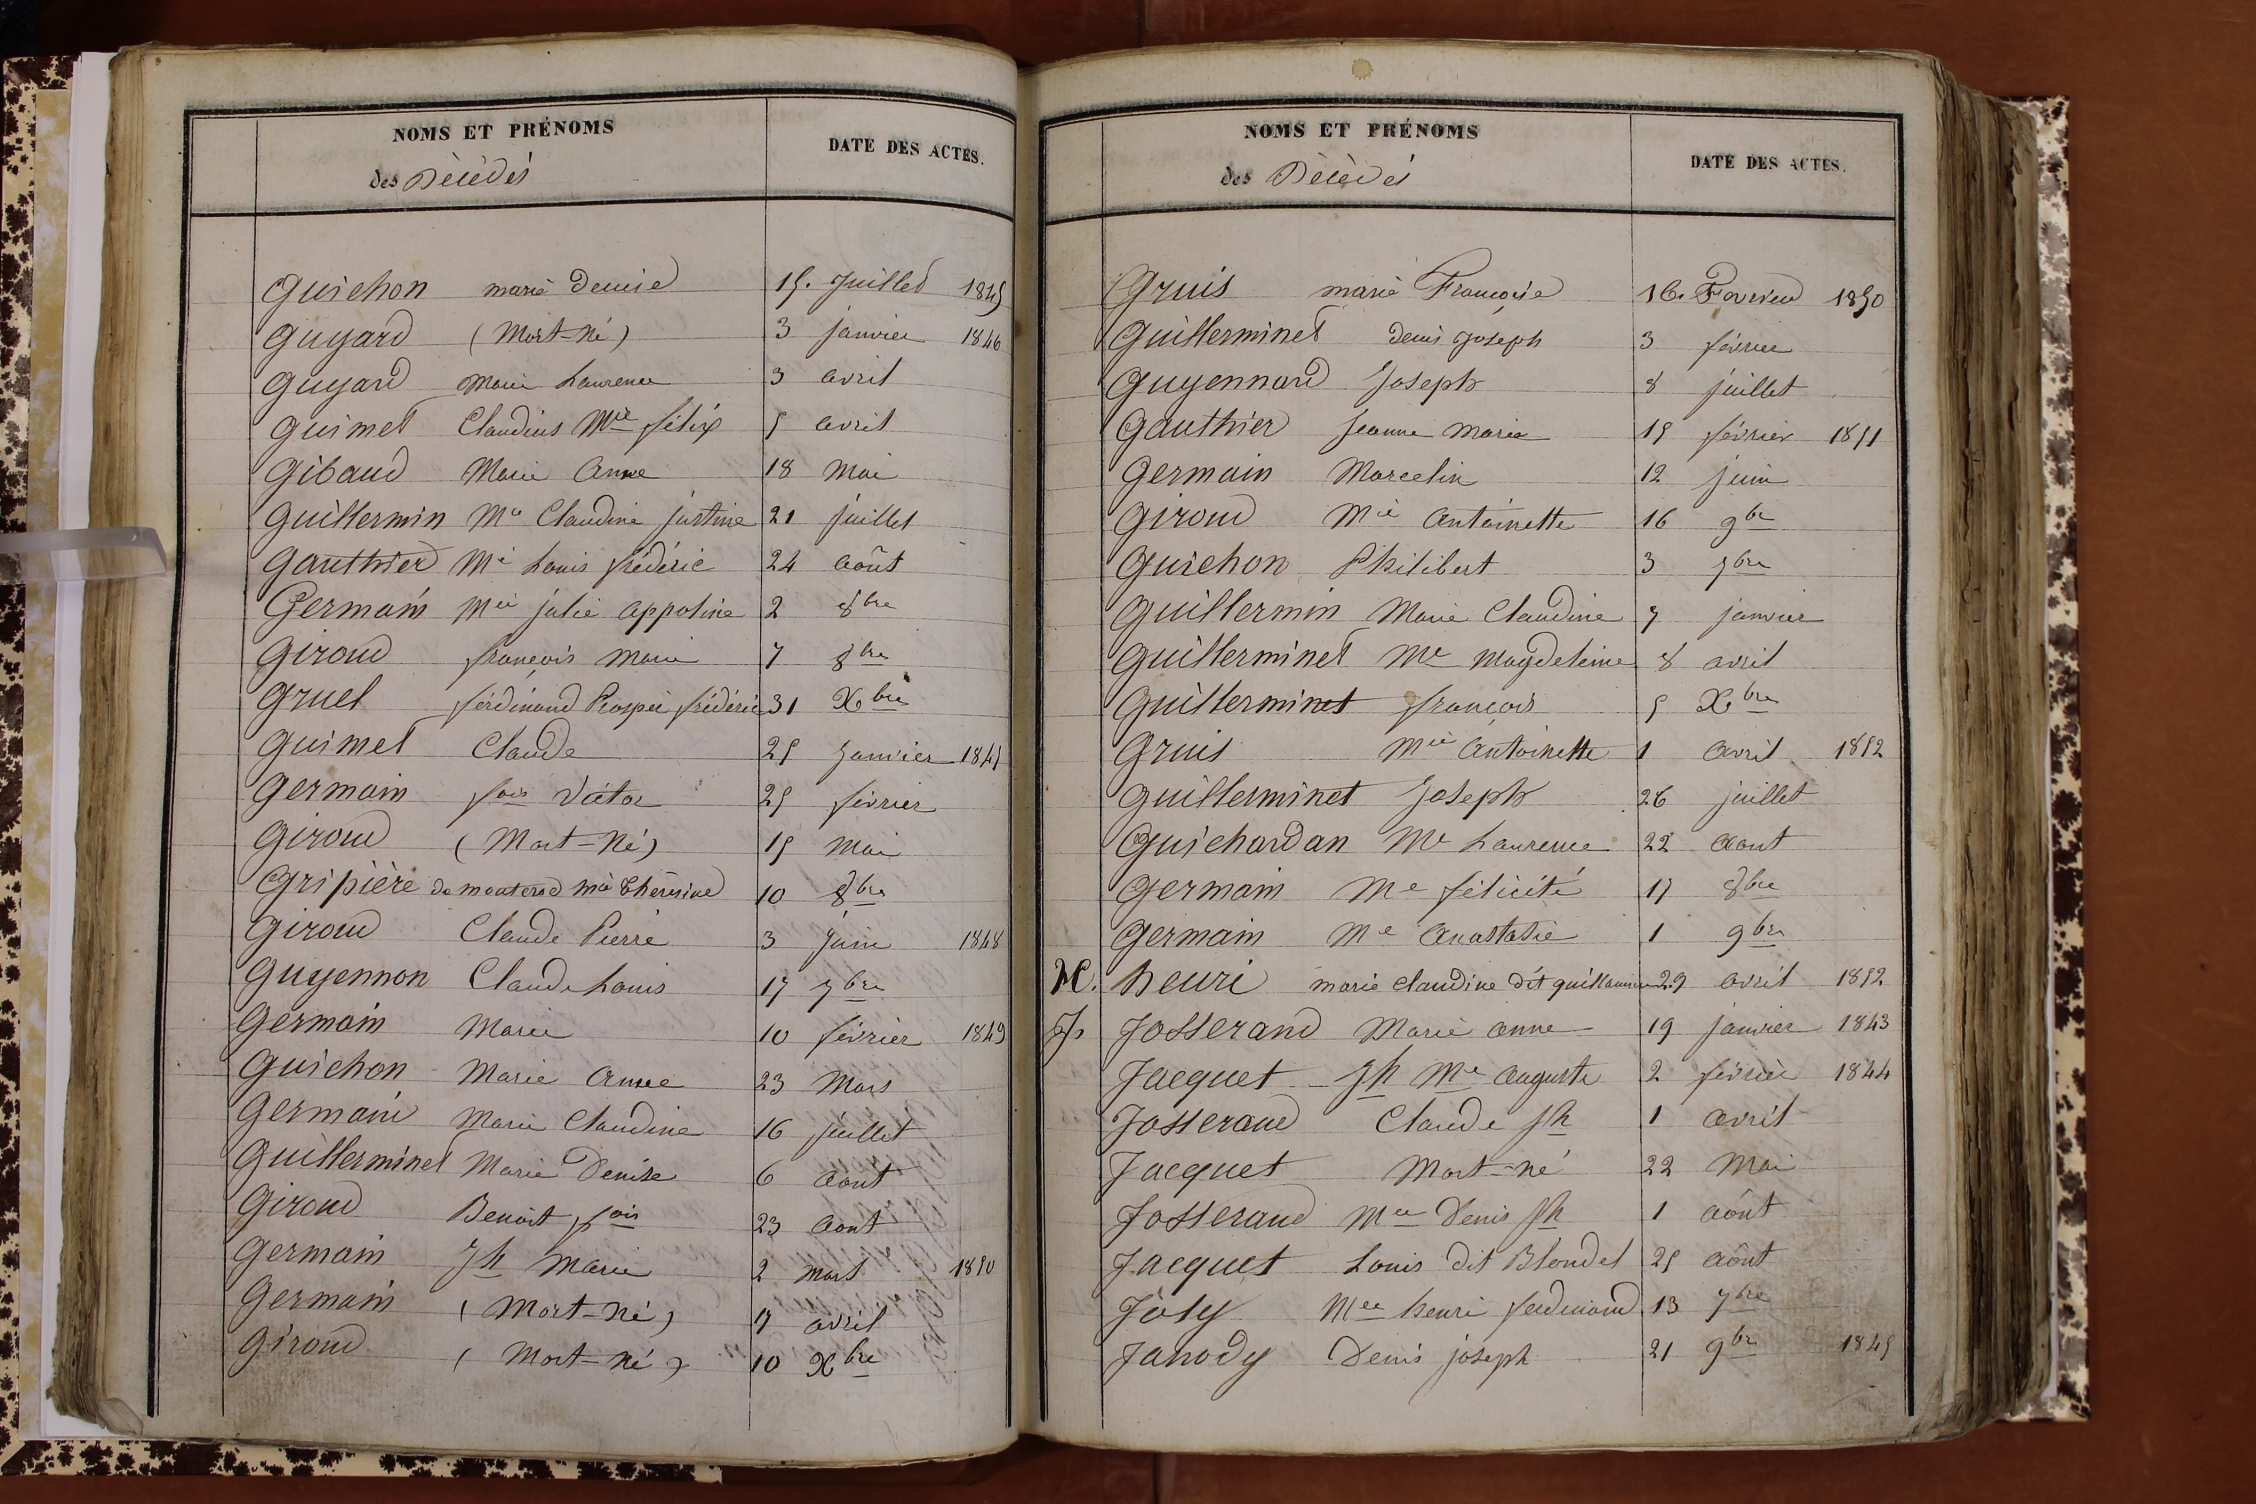 NOMS ET PRÉNOMS
des Décédés
DATE DES ACTES.
Guichon marie Denise 15. Juillet 1845
Guyard (Mort-né) 3 janvier 1846
Guyard Marie Laurence 3 avril
Guimet Claudius Mie félix 5 avril
Gibaud Marie Anne 18 Mai
Guillermin Mie Claudine justine 21 juillet
Gauthier Mie Louis frédéric 24 août
Germain Mie julie appoline 2 8bre
Giroud françois Marie 7 8bre
Gruel ferdinand Prosper frédéric 31 Xbre
Guimet Claude 25 janvier 1847
Germain fois Victor 25 février
Giroud (Mort-né) 15 Mai
Gripière de Mie Thérésine 10 8bre
Giroud Claude Pierre 3 juin 1848
Guyennon Claude Louis 17 7bre
Germain Marie 10 février 1849
Guichon Marie Anne 23 Mars
Germain Marie Claudine 16 juillet
Guillerminet Marie Denise 6 aout
Giroud Benoit fois 23 aout
Germain Jh Marie 2 mars 1850
Germain (Mort-né) 7 avril
Giroud (Mort-né) 10 Xbre
NOMS ET PRÉNOMS
des Décédés
DATE DES ACTES.
Gruis marie Françoise 16. Fevrier 1850
Guillerminet Denis Joseph 3 février
Guyennard Joseph 8 juillet
Gauthier Jeanne Marie 15 février 1851
Germain Marcelin 12 juin
Giroud Mie Antoinette 16 9bre
Guichon Philibert 3 7bre
Guillermin Marie Claudine 7 janvier
Guillerminet Me Magdeleine 8 avril
Guillerminet françois 5 Xbre
Gruis Mie Antoinette 1 avril 1852
Guillerminet Joseph 26 juillet
Guichardan Me Laurence 22 aout
Germain Me félicité 17 8bre
Germain Me Anastasie 1 9bre
H. henri marie claudine dit guillaume 29 avril 1852
J. Josserand Marie anne 19 janvier 1843
Jacquet Jh Me Auguste 2 février 1844
Josserand Claude Jh 1 avril
Jacquet Mort-né 22 Mai
Josserand Mie Denis Jh 1 août
Jacquet Louis dit Blondel 25 août
Joly Mie henri ferdinand 13 7bre
Janody Denis joseph 21 9bre 1845